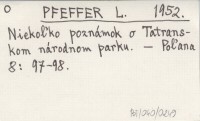 O
PFEFFER L. 1952.
Niekoľko poznámok o Tatrans-
kom národnom parku. — Poľana
8: 97-98.